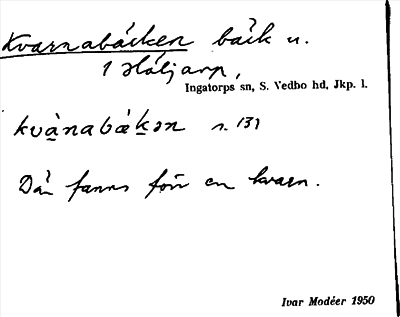 Kvarnabäcken bäck u.
1 Häljarp,
Ingatorps sn, S. Vedbo hd, Jkp. l.
kvànabäkən s. 131
Där fanns förr en kvarn.
Ivar Modéer 1950